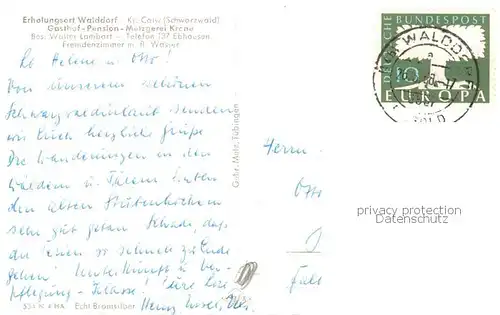 Erholungsort Walddorf Kr. Calw (Schwarzwald)
Gasthof-Pension-Metzgerei Krone
Bes. Walter Lambart - Telefon 137 Ebhausen
Fremdenzimmer m. fl. Wasser
Lb Helene u. Otto!
Von unserem schönen
Schwarzwaldurlaub senden
wir Euch herzliche Grüße
Die Wanderungen in den
Wäldern u. Tälern haben
den alten Stubenhockern
sehr gut getan Schade, daß
die Ferien so schnell zu Ende
gehen! Unterkunft u Ver-
pflegung - Klasse! Eure
Echt Bromsilber
Gebr. Metz, Tübingen
DEUTSCHE BUNDESPOST
10
EUROPA
WALDDORF
Herrn
Otto
privacy protection
Datenschutz